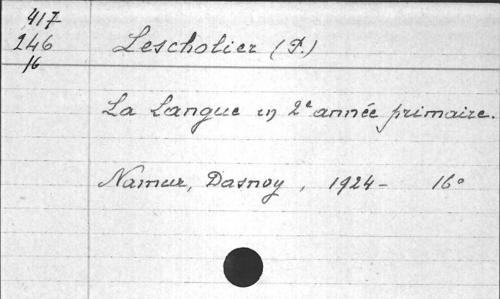 417
246
16
Lescholier (F.)
La Langue en 2e année primaire.
Namur, Dasnoy, 1924- 16°